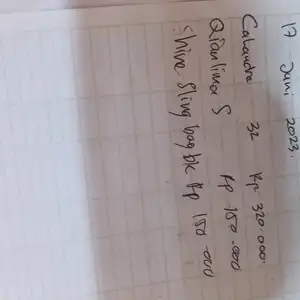 17 Juni 2023.
Calandre 32 Rp 320.000
Qianlima S Rp 150.000
Shine Sling bag blk Rp 150.000